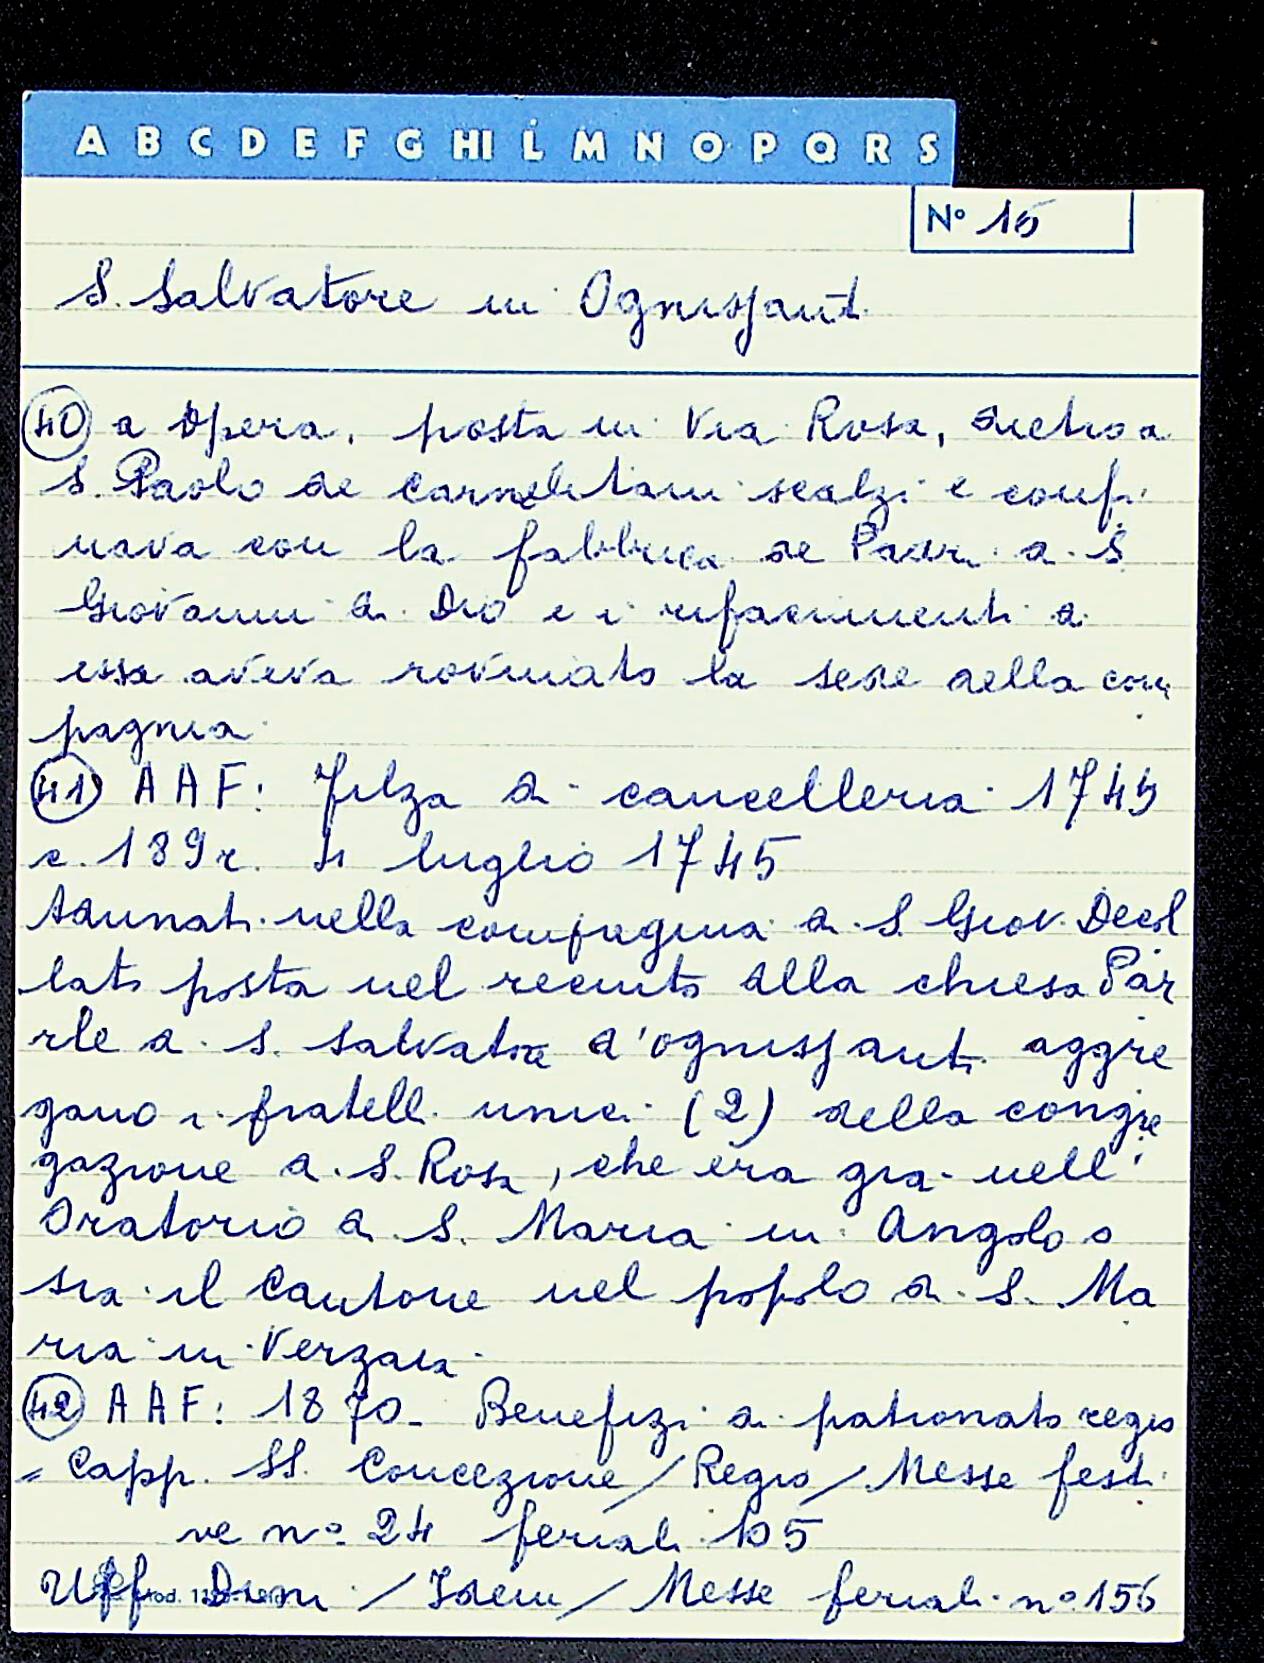 A B C D E F G HI L M N O P Q R S
Nº 15
S. Salvatore in Ognissanti
40 a Opera, posta in Via Rosa, dietro a
S. Paolo de Carmelitani scalzi e confi
nava con la fabbrica de Padri di S.
Giovanni di Dio e i rifacimenti di
essa aveva rovinato la sede della com
pagnia
41) AAF: Filza di cancelleria 1745
c. 189r. 4 luglio 1745
Adunati nella compagnia di S. Giov. Decol
lato posta nel recinto della chiesa Par
rle di S. Salvatore d'ognissanti aggre
gano i fratelli unici (2) della congre
gazione di S. Rosa, che era già nell'
Oratorio di S. Maria in Angolo o
sia il Cantone nel popolo di S. Ma
ria in Verzaia
42) AAF: 1870 - Benefizi di patronato regio
= Capp. SS. Concezione / Regio / Messe festi
ve nº 24 feriali 105
Uff Dim / Idem / Messe feriali nº 156